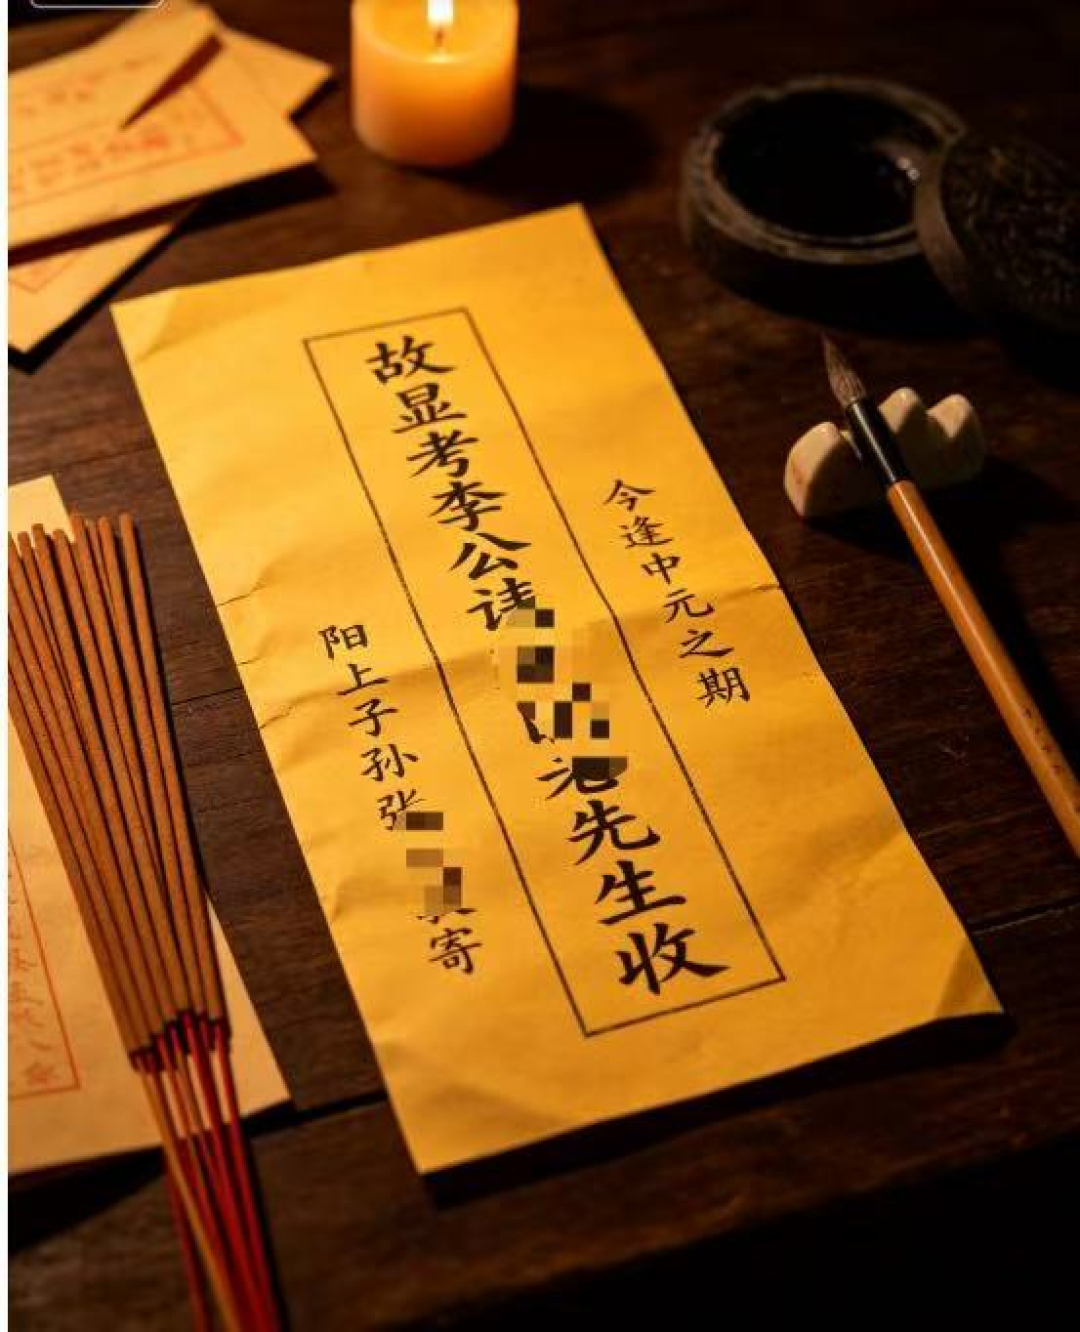 今逢中元之期
故显考李公讳先生收
阳上子孙张寄